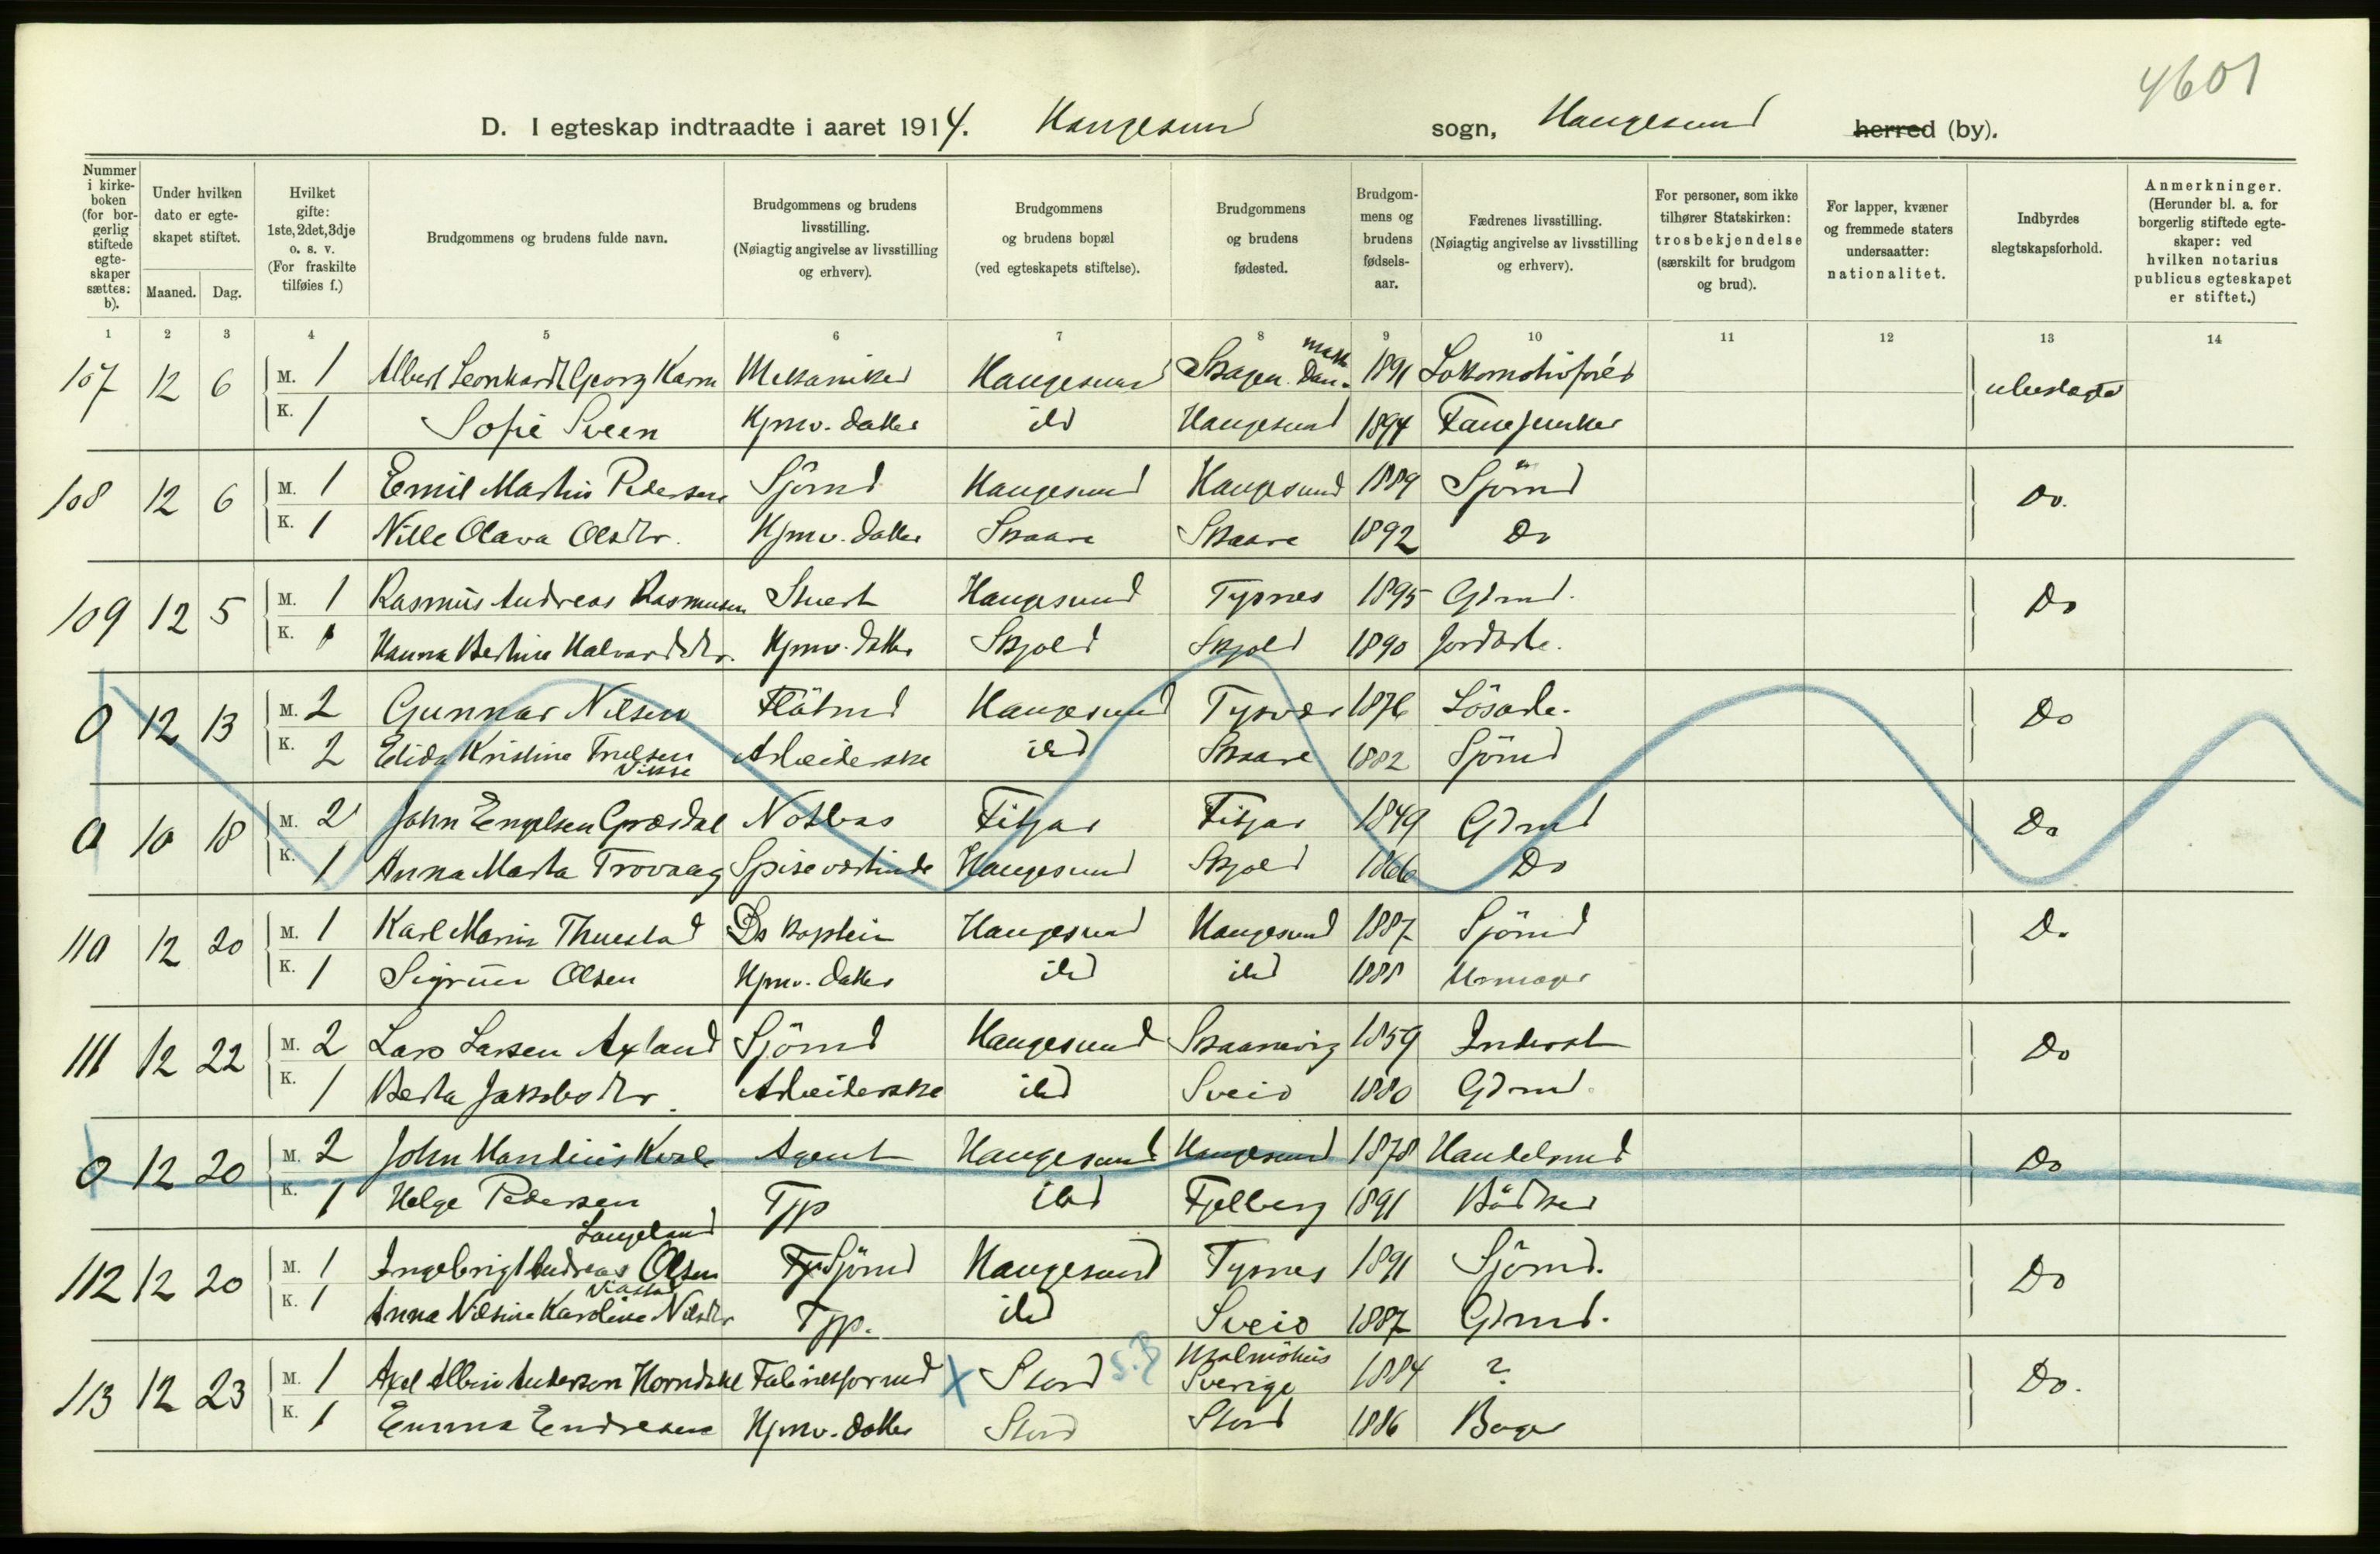 4601
D. I egteskap indtraadte i aaret 1914. Haugesund sogn, Haugesund herred (by).
Nummer i kirke-boken (for bor-gerlig stiftede egte-skaper sættes: b).
Under hvilken dato er egte-skapet stiftet.
Maaned. Dag.
Hvilket gifte: 1ste, 2det, 3dje o. s. v. (For fraskilte tilføies f.)
Brudgommens og brudens fulde navn.
Brudgommens og brudens livsstilling. (Nøiagtig angivelse av livsstilling og erhverv).
Brudgommens og brudens bopæl (ved egteskapets stiftelse).
Brudgommens og brudens fødested.
Brudgom-mens og brudens fødsels-aar.
Fædrenes livsstilling. (Nøiagtig angivelse av livsstilling og erhverv).
For personer, som ikke tilhører Statskirken: trosbekjendelse (særskilt for brudgom og brud).
For lapper, kvæner og fremmede staters undersaatter: nationalitet.
Indbyrdes slegtskapsforhold.
Anmerkninger. (Herunder bl. a. for borgerlig stiftede egte-skaper: ved hvilken notarius publicus egteskapet er stiftet.)
1 2 3 4 5 6 7 8 9 10 11 12 13 14
107 12 6 M. 1 Albert Leonhardt Georg Karm Mekaniker Haugesund Skagen Danmark 1891 Lokomotivförer ubeslægt
K. 1 Sofie Sveen Hjmv. datter ibd Haugesund 1894 Fanejunker
108 12 6 M. 1 Emil Martin Pedersen Sjömd Haugesund Haugesund 1889 Sjömd Do.
K. 1 Nille Olava Olsdtr. Hjmv. datter Skaare Skaare 1892 Do
109 12 5 M. 1 Rasmus Andreas Rasmussen Stuert Haugesund Tysnes 1895 Gdmd. Do
K. 1 Hanna Bertine Halvardsdtr. Hjmv. datter Skjold Skjold 1890 Jordarb.
0 12 13 M. 2 Gunnar Nilsen Flötmd Haugesund Tysvær 1876 Lösarb. Do
K. 2 Elida Kristine Truelsen Vikse Arbeiderske ibd Skaare 1882 Sjömd
0 10 18 M. 2 John Engelsen Grærdal Notbas Fitjar Fitjar 1849 Gdmd Do
K. 1 Anna Marta Trovaag Spiseværtinde Haugesund Skjold 1866 Do
110 12 20 M. 1 Karl Marin Thuestad Ds kaptein Haugesund Haugesund 1887 Sjömd Do
K. 1 Sigrun Olsen Hjmv. datter ibd ibd 1888 Urmager
111 12 22 M. 2 Lars Larsen Axland Sjömd Haugesund Skaanevig 1859 Inderst Do
K. 1 Berta Jakobsdtr. Arbeiderske ibd Sveio 1880 Gdmd.
0 12 20 M. 2 John Mandius Kvale Agent Haugesund Haugesund 1878 Handelsmd Do
K. 1 Helge Pedersen Tjp ibd Fjelberg 1891 Bödker
112 12 20 M. 1 Ingebrigt Andreas Olsen Langeland Sjömd Haugesund Tysnes 1891 Sjömd. Do
K. 1 Anna Nilsine Karoline Nilsdtr Tjp. ibd Sveio 1887 Gdmd.
113 12 23 M. 1 Axel Albin Andersen Horndahl Fabriksformd X Stord S.? Malmöhus Sverige 1884 ? Do.
K. 1 Emma Endresen Hjmv. datter Stord Stord 1886 Bager